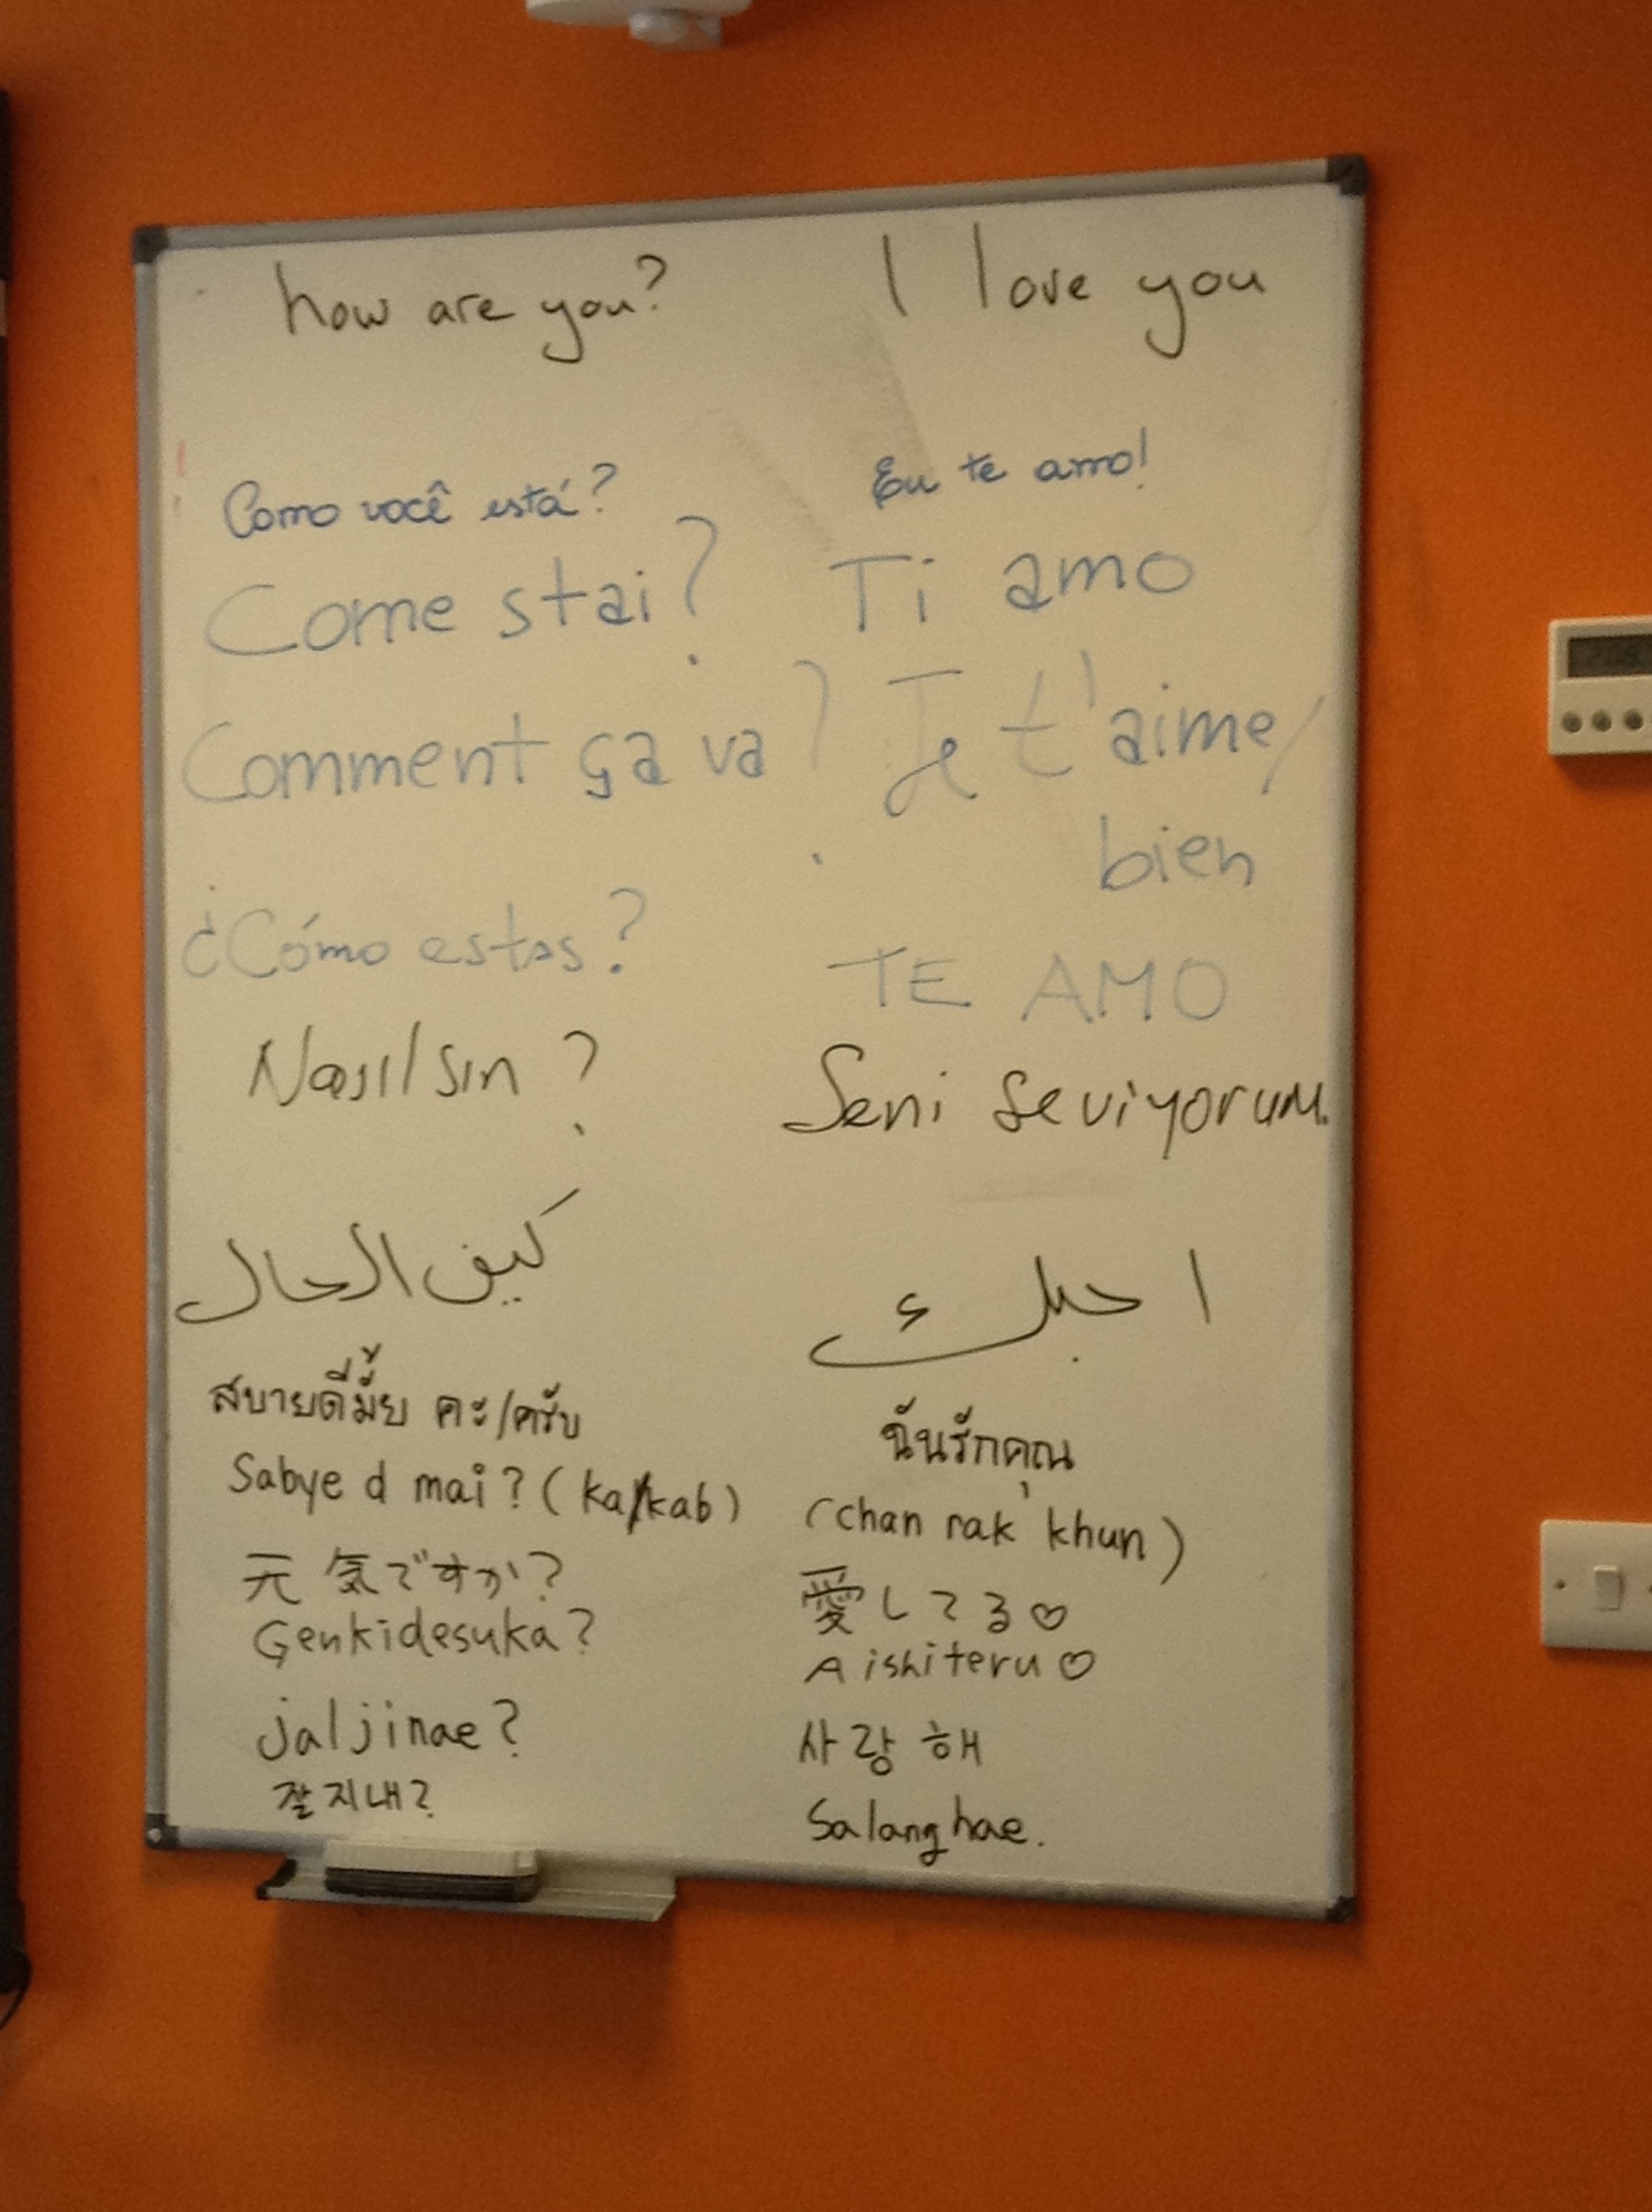 how are you?
I love you
Como você está?
Eu te amo!
Come stai?
Ti amo
Comment ça va?
Je t'aime/
bien
¿Cómo estas?
TE AMO
Nasılsın?
Seni seviyorum.
كيف الحال
احبك
สบายดีมั้ย คะ/ครับ
ฉันรักคุณ
Sabye d mai? (ka/kab)
(chan rak khun)
元気ですか?
愛してる♡
Genkidesuka?
Aishiteru♡
jaljinae?
사랑해
잘지내?
Salanghae.